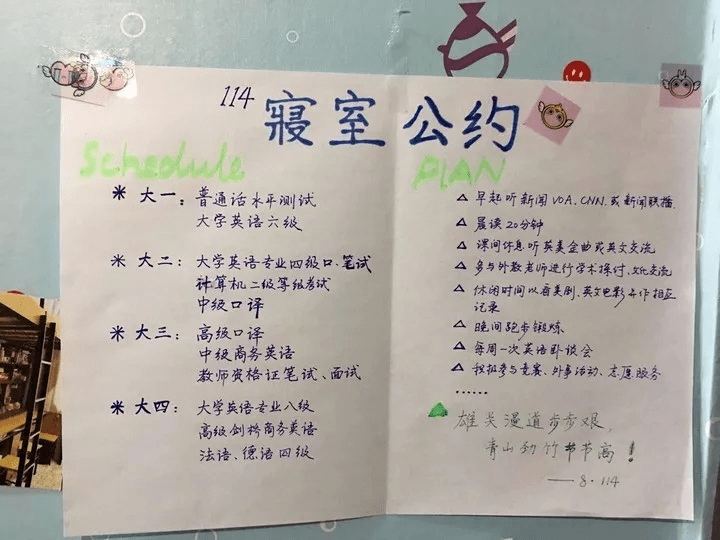 114 寝室公约
Schedule
米 大一：普通话水平测试
大学英语六级
米 大二：大学英语专业四级口、笔试
计算机二级等级考试
中级口译
米 大三：高级口译
中级商务英语
教师资格证笔试、面试
米 大四：大学英语专业八级
高级剑桥商务英语
法语、德语四级
PLAN
△ 早起听新闻 VOA、CNN、或新闻联播.
△ 晨读20分钟
△ 课间休息听英美金曲或英文交流
△ 多与外教老师进行学术探讨、文化交流
△ 休闲时间以看美剧、英文电影并作相应
记录
△ 晚间跑步锻炼
△ 每周一次英语卧谈会
△ 积极参与竞赛、外事活动、志愿服务
......
雄关漫道步步艰,
青山劲竹节节高!
——8·114